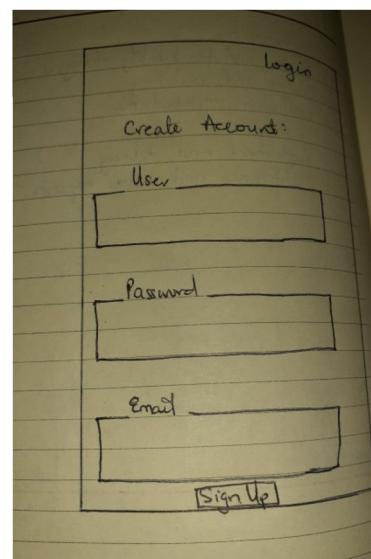 login
Create Account:
User
Password
Email
Sign Up